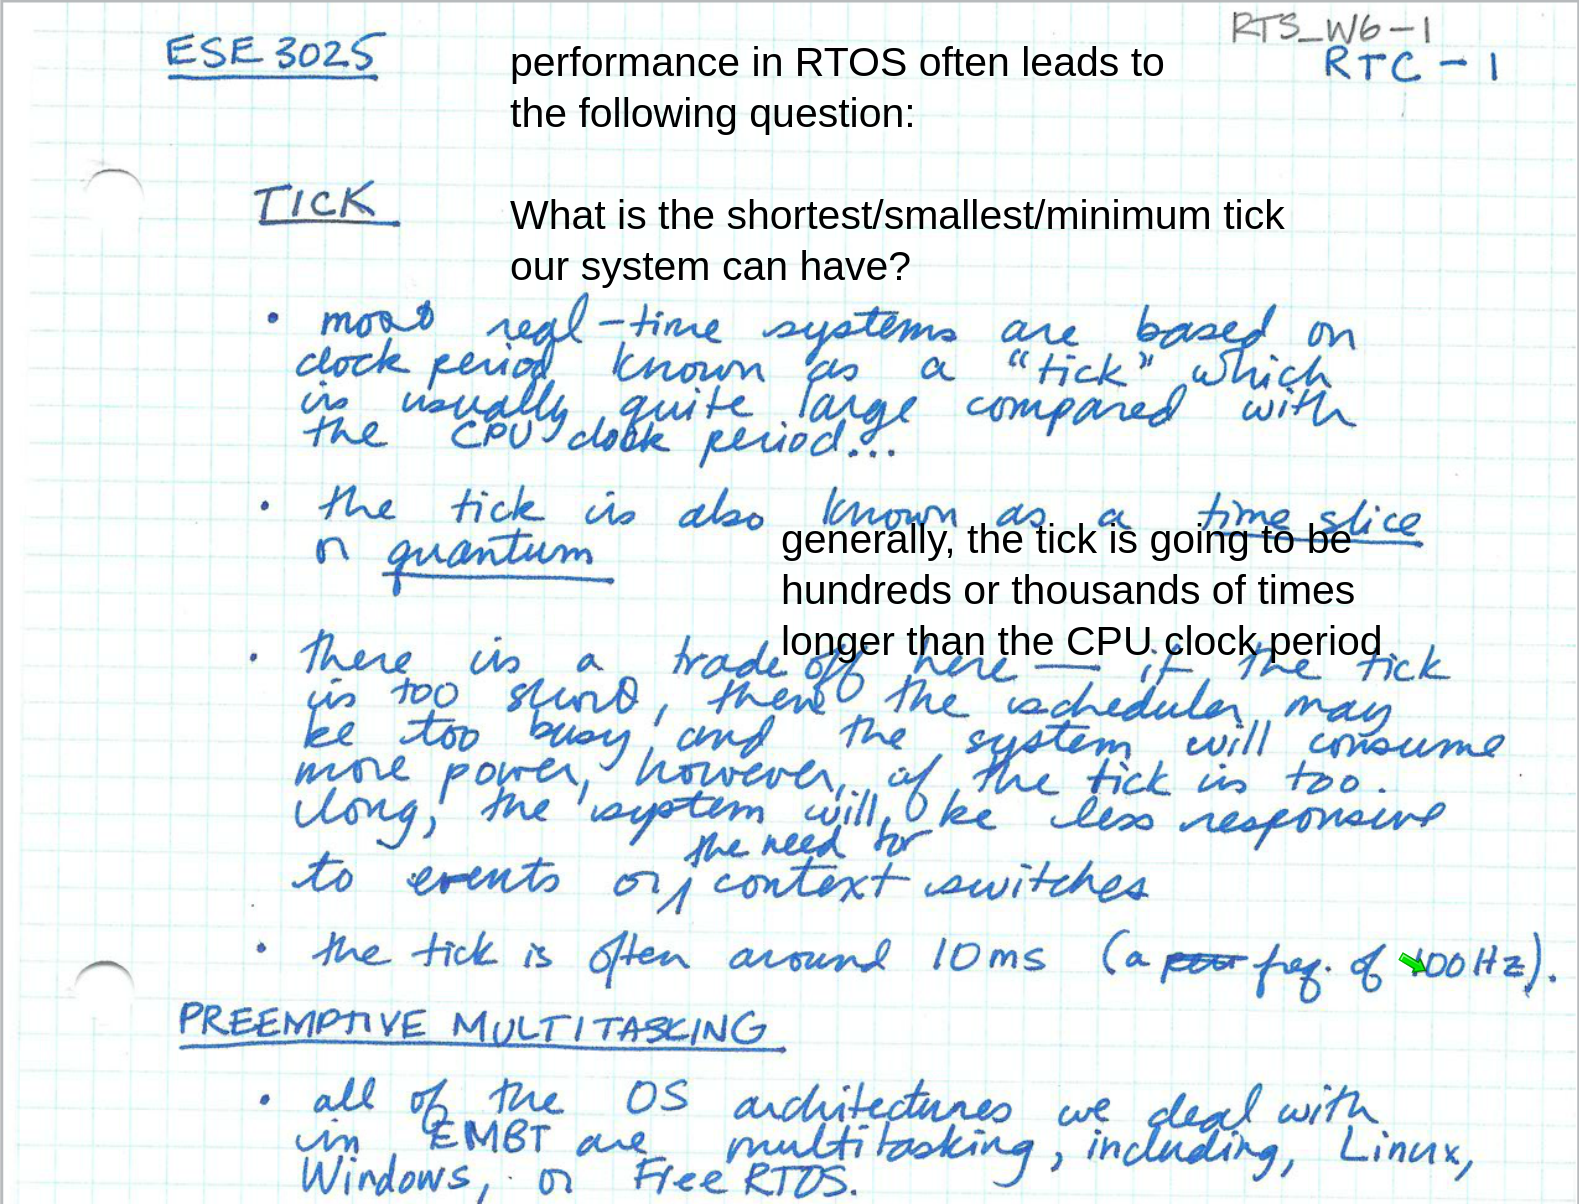 RTS_W6-1
ESE 3025
RTC - 1
performance in RTOS often leads to
the following question:
TICK
What is the shortest/smallest/minimum tick
our system can have?
• most real-time systems are based on
clock period known as a "tick" which
is usually quite large compared with
the CPU clock period...
• the tick is also known as a time slice
or quantum
generally, the tick is going to be
hundreds or thousands of times
longer than the CPU clock period
• there is a trade off here — if the tick
is too short, then the scheduler may
be too busy and the system will consume
more power, however, if the tick is too
long, the system will be less responsive
the need for
to events or context switches
• the tick is often around 10ms (a freq. of 100Hz).
PREEMPTIVE MULTITASKING
• all of the OS architectures we deal with
in EMBT are multitasking, including, Linux,
Windows, or Free RTOS.